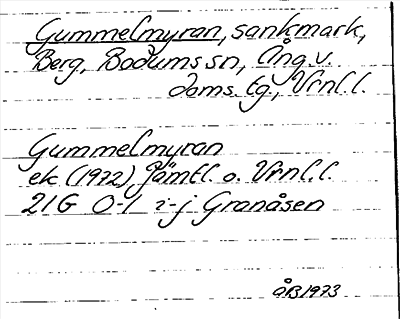 Gummelmyran, sankmark,
Berg, Bodums sn, Ång. v.
doms. tg., Vrnl. l.
Gummelmyran
ek (1972) Jämtl. o. Vrnl. l.
21G 0-1 i-j Granåsen
ÅB 1973